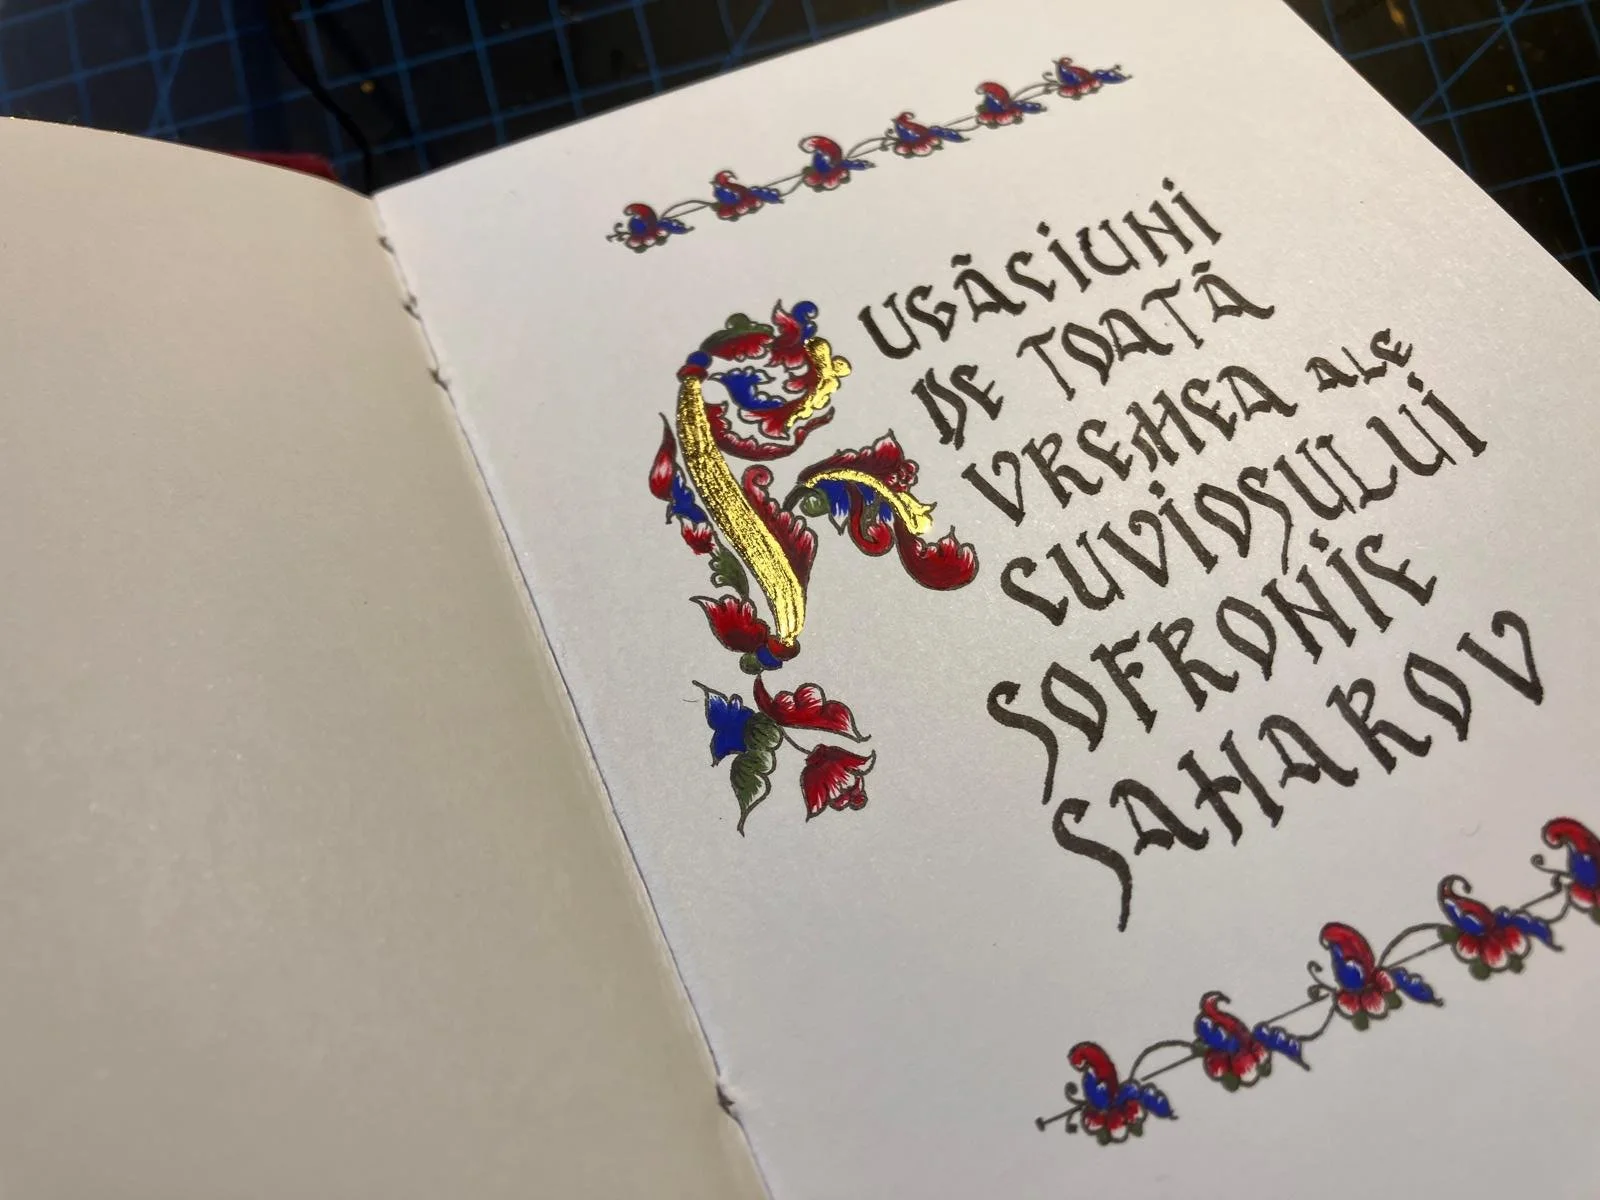 RUGĂCIUNI
DE TOATĂ
VREMEA ALE
CUVIOSULUI
SOFRONIE
SAHAROV